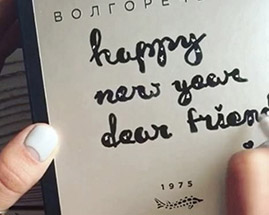 ВОЛГОРЕ
happy
new year
dear friend
1975